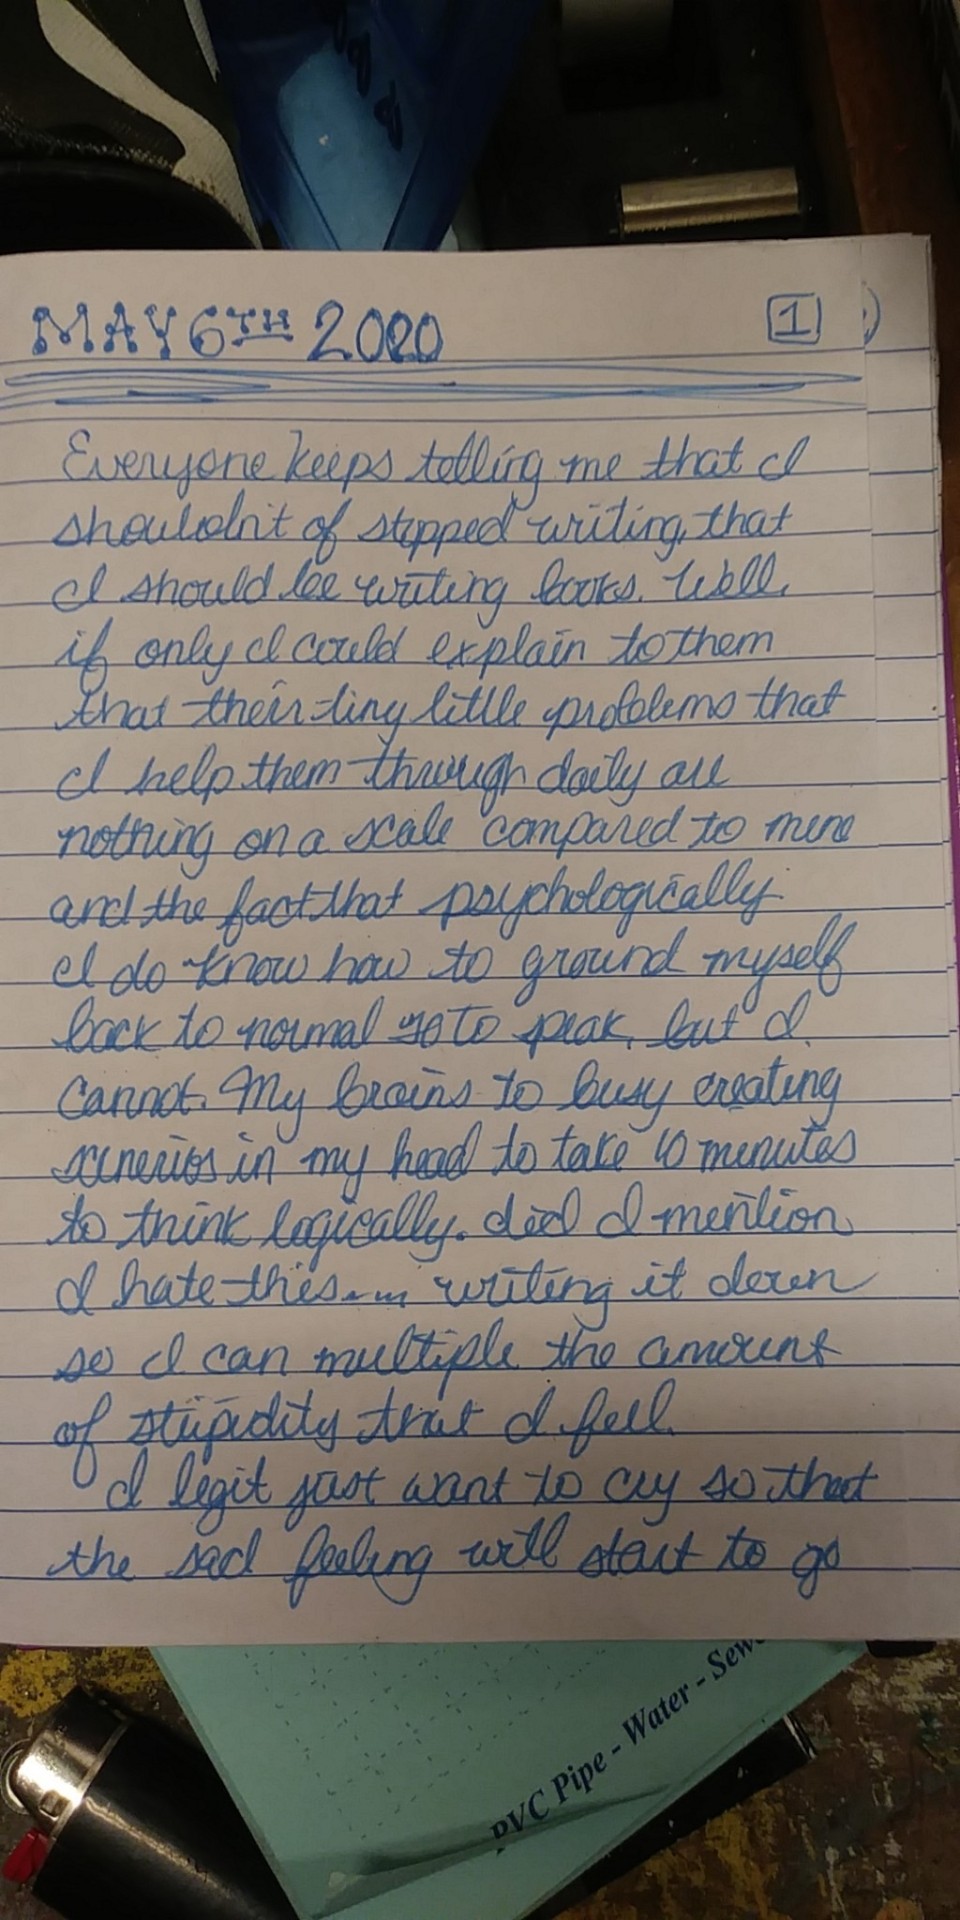 MAY 6TH 2020
1
Everyone keeps telling me that I
shouldn't of stopped writing, that
I should be writing books. Well,
if only I could explain to them
that their tiny little problems that
I help them through daily are
nothing on a scale compared to mine
and the fact that psychologically
I do know how to ground myself
back to normal so to speak, but I
cannot. My brains to busy creating
scinerios in my head to take 10 minutes
to think logically. did I mention
I hate this.... writing it down
so I can multiple the amount
of stupidity that I feel.
I legit just want to cry so that
the sad feeling will start to go
PVC Pipe - Water - Sew